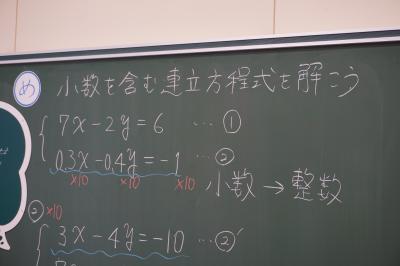 め 小数を含む連立方程式を解こう
7x-2y=6 …①
0.3x-0.4y=-1 …②
×10 ×10 ×10
小数→整数
②×10
3x-4y=-10 …②′